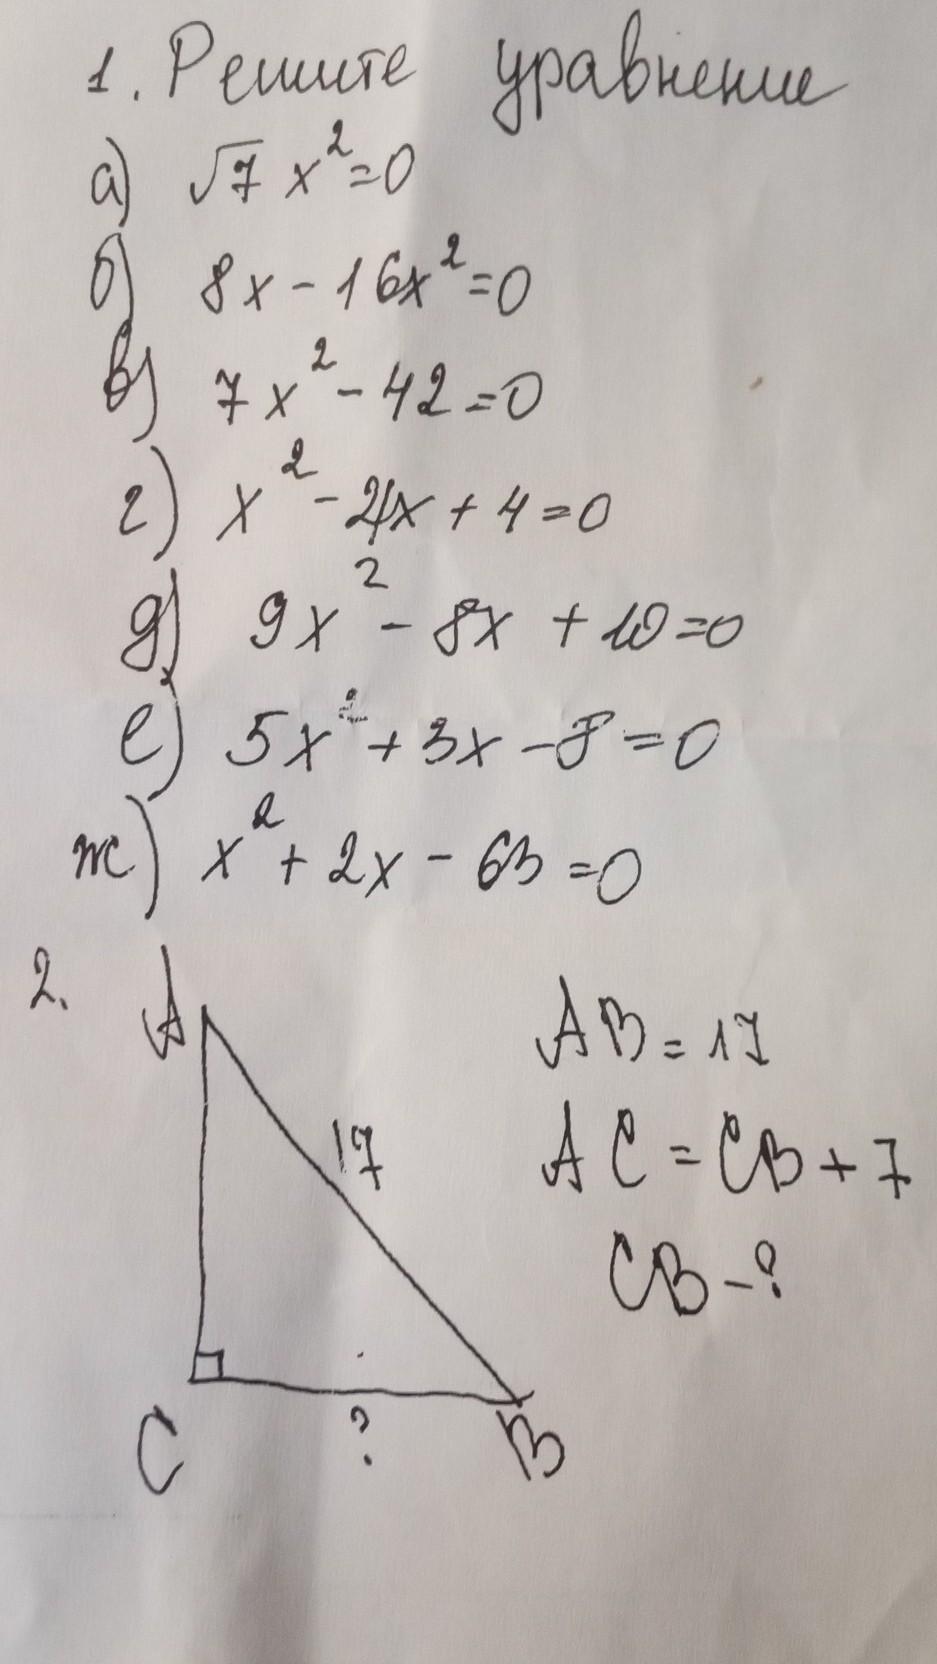 1. Решите уравнение
а) √7 x² = 0
б) 8x - 16x² = 0
в) 7x² - 42 = 0
г) x² - 4x + 4 = 0
д) 9x² - 8x + 10 = 0
е) 5x² + 3x - 8 = 0
ж) x² + 2x - 63 = 0
2.
A
17
C
?
B
AB = 17
AC = CB + 7
CB - ?